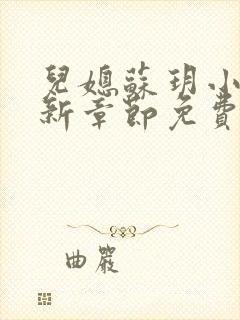 兒媳蘇玥小
新章節免費
曲嚴